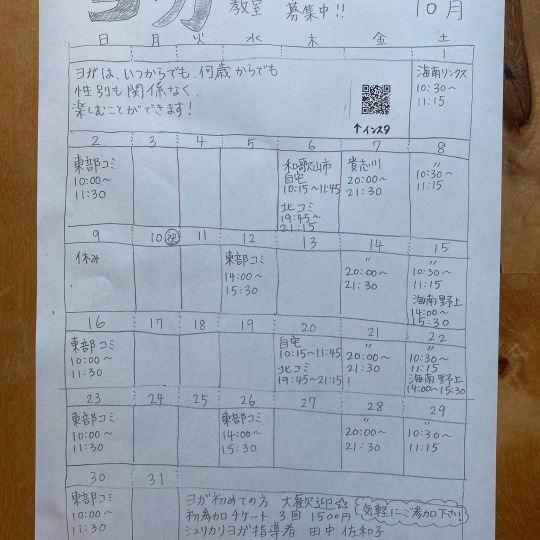 ヨガ 教室 募集中!! 10月
日 月 火 水 木 金 土
1
ヨガは、いつからでも、何歳からでも
性別も関係なく
楽しむことができます!
↑インスタ
海南リンクス
10:30〜
11:15
2 3 4 5 6 7 8
東部コミ
10:00〜
11:30
和歌山市
自宅
10:15〜11:45
北コミ
19:45〜
21:15
貴志川
20:00〜
21:30
〃
10:30〜
11:15
9 10 祝 11 12 13 14 15
休み
東部コミ
14:00〜
15:30
〃
20:00〜
21:30
〃
10:30〜
11:15
海南野上
14:00〜
15:30
16 17 18 19 20 21 22
東部コミ
10:00〜
11:30
自宅
10:15〜11:45
北コミ
19:45〜21:15
〃
20:00〜
21:30
〃
10:30〜
11:15
海南野上
14:00〜15:30
23 24 25 26 27 28 29
東部コミ
10:00〜
11:30
東部コミ
14:00〜
15:30
〃
20:00〜
21:30
〃
10:30〜
11:15
30 31
東部コミ
10:00〜
11:30
ヨガ初めての方 大歓迎☆
初参加チケット 3回 1500円
シュリカリヨガ指導者 田中 佐和子
気軽にご参加下さい!